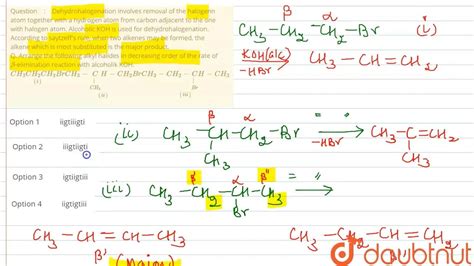 Question : Dehydrohalogenation involves removal of the halogen
atom together with a hydrogen atom from carbon adjacent to the one
with halogen atom. Alcoholic KOH is used for dehydrohalogenation.
According to saytzeff's rule, when two alkenes may be formed, the
alkene which is most substituted is the major product.
Q. Arrange the following alkyl halides in decreasing order of the rate of
β-elimination reaction with alcoholic KOH.
CH₃CH₂CH₂BrCH₃ − CH − CH₂BrCH₃ − CH₂ − CH − CH₃
| |
CH₃ Br
(i) (ii) (iii)
Option 1 iigtiiigti
Option 2 iiigtiigti
Option 3 igtiigtiii
Option 4 iigtigtiii
β α
CH₃ CH₂ CH₂ - Br (i)
KOH(alc)
-HBr
CH₃ - CH = CH₂
(ii) CH₃ - CH - CH₂ - Br
β α
CH₃
" "
-HBr
CH₃ - C = CH₂
CH₃
(iii) CH₃ - CH₂ - CH - CH₃
β' α β"
Br
" "
CH₃ - CH = CH - CH₃
β' (Major)
CH₃ - CH₂ - CH = CH₂
doubtnut